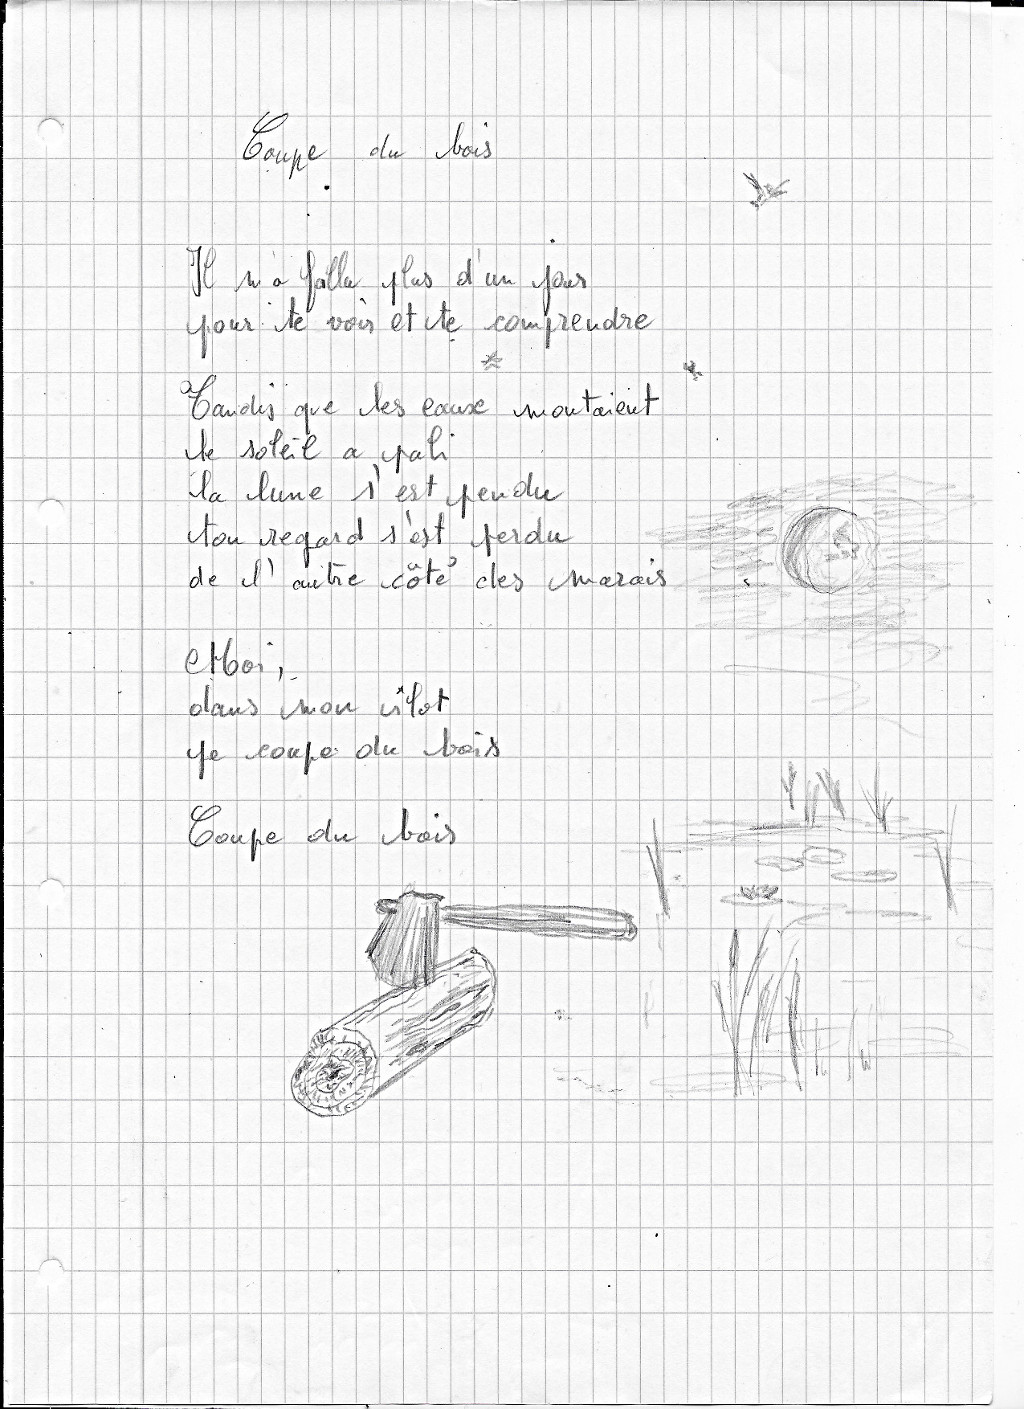 Coupe du bois
Il m'a fallu plus d'un jour
pour te voir et te comprendre
Tandis que les eaux montaient
le soleil a pali
la lune s'est pendu
ton regard s'est perdu
de l'autre côté des marais
Moi,
dans mon îlot
je coupe du bois
Coupe du bois